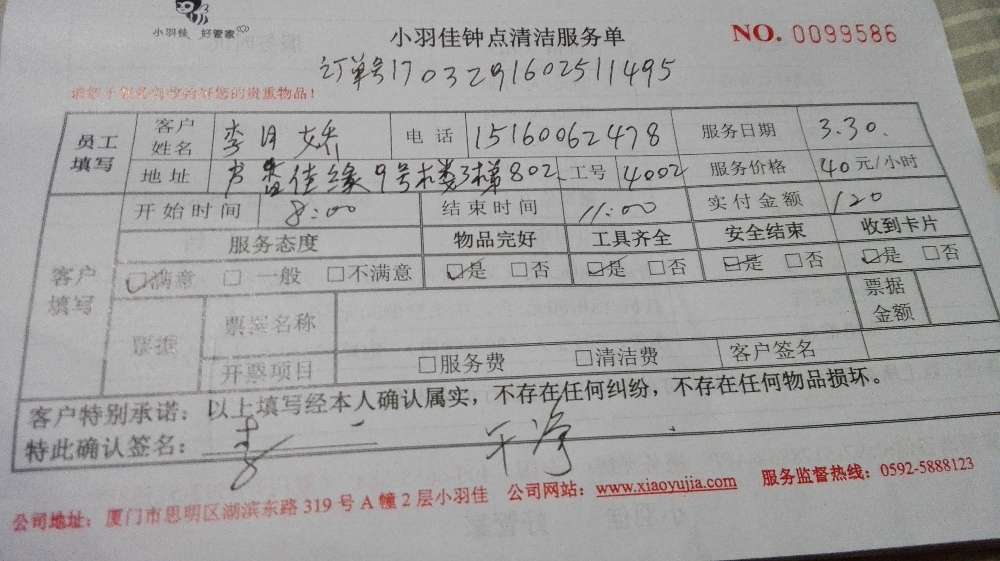 小羽佳 好管家
小羽佳钟点清洁服务单
NO. 0099586
订单号1703291602511495
请您于服务前收拾好您的贵重物品！
员工填写 客户姓名 李月娇 电话 15160062478 服务日期 3.30.
地址 书香佳缘9号楼3梯802 工号 4002 服务价格 40元/小时
客户填写 开始时间 8:00 结束时间 11:00 实付金额 120
服务态度 物品完好 工具齐全 安全结束 收到卡片
☑满意 □一般 □不满意 ☑是 □否 ☑是 □否 ☑是 □否 ☑是 □否
票据 票据名称 票据金额
开票项目 □服务费 □清洁费 客户签名
客户特别承诺：以上填写经本人确认属实，不存在任何纠纷，不存在任何物品损坏。
特此确认签名：李 干净
公司地址：厦门市思明区湖滨东路319号A幢2层小羽佳 公司网站：www.xiaoyujia.com 服务监督热线：0592-5888123